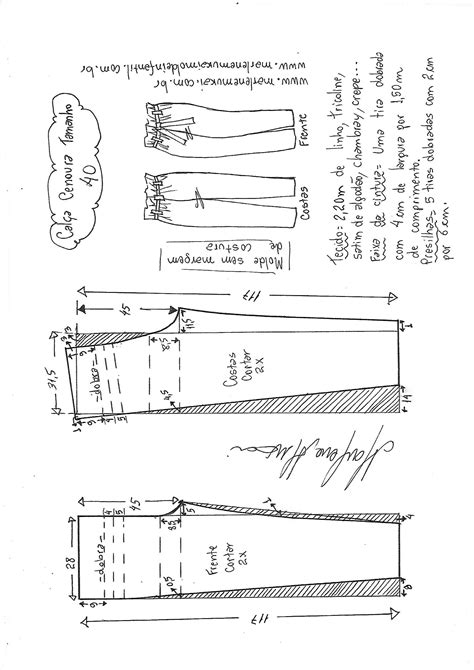 Calça Cenoura Tamanho
40
www.marlenemukai.com.br
www.marlenemukaimoldeinfantil.com.br
Frente
Costas
Molde sem margem
de costura
Tecido= 2,20m de linho, tricoline,
satim de algodão, chambray, crepe...
Faixa de cintura= Uma tira dobrada
com 4cm de largura por 1,50m
de comprimento.
Presilhas= 5 tiras dobradas com 2cm
por 6cm.
117
45
31,5
3
6
4
5
=dobra=
8,5
11,5
4,5
Costas
Cortar
2x
1
14
Marlene Mukai
117
45
28
6
4
5
=dobra=
8,5
5
0,5
1
Frente
Cortar
2x
4
8